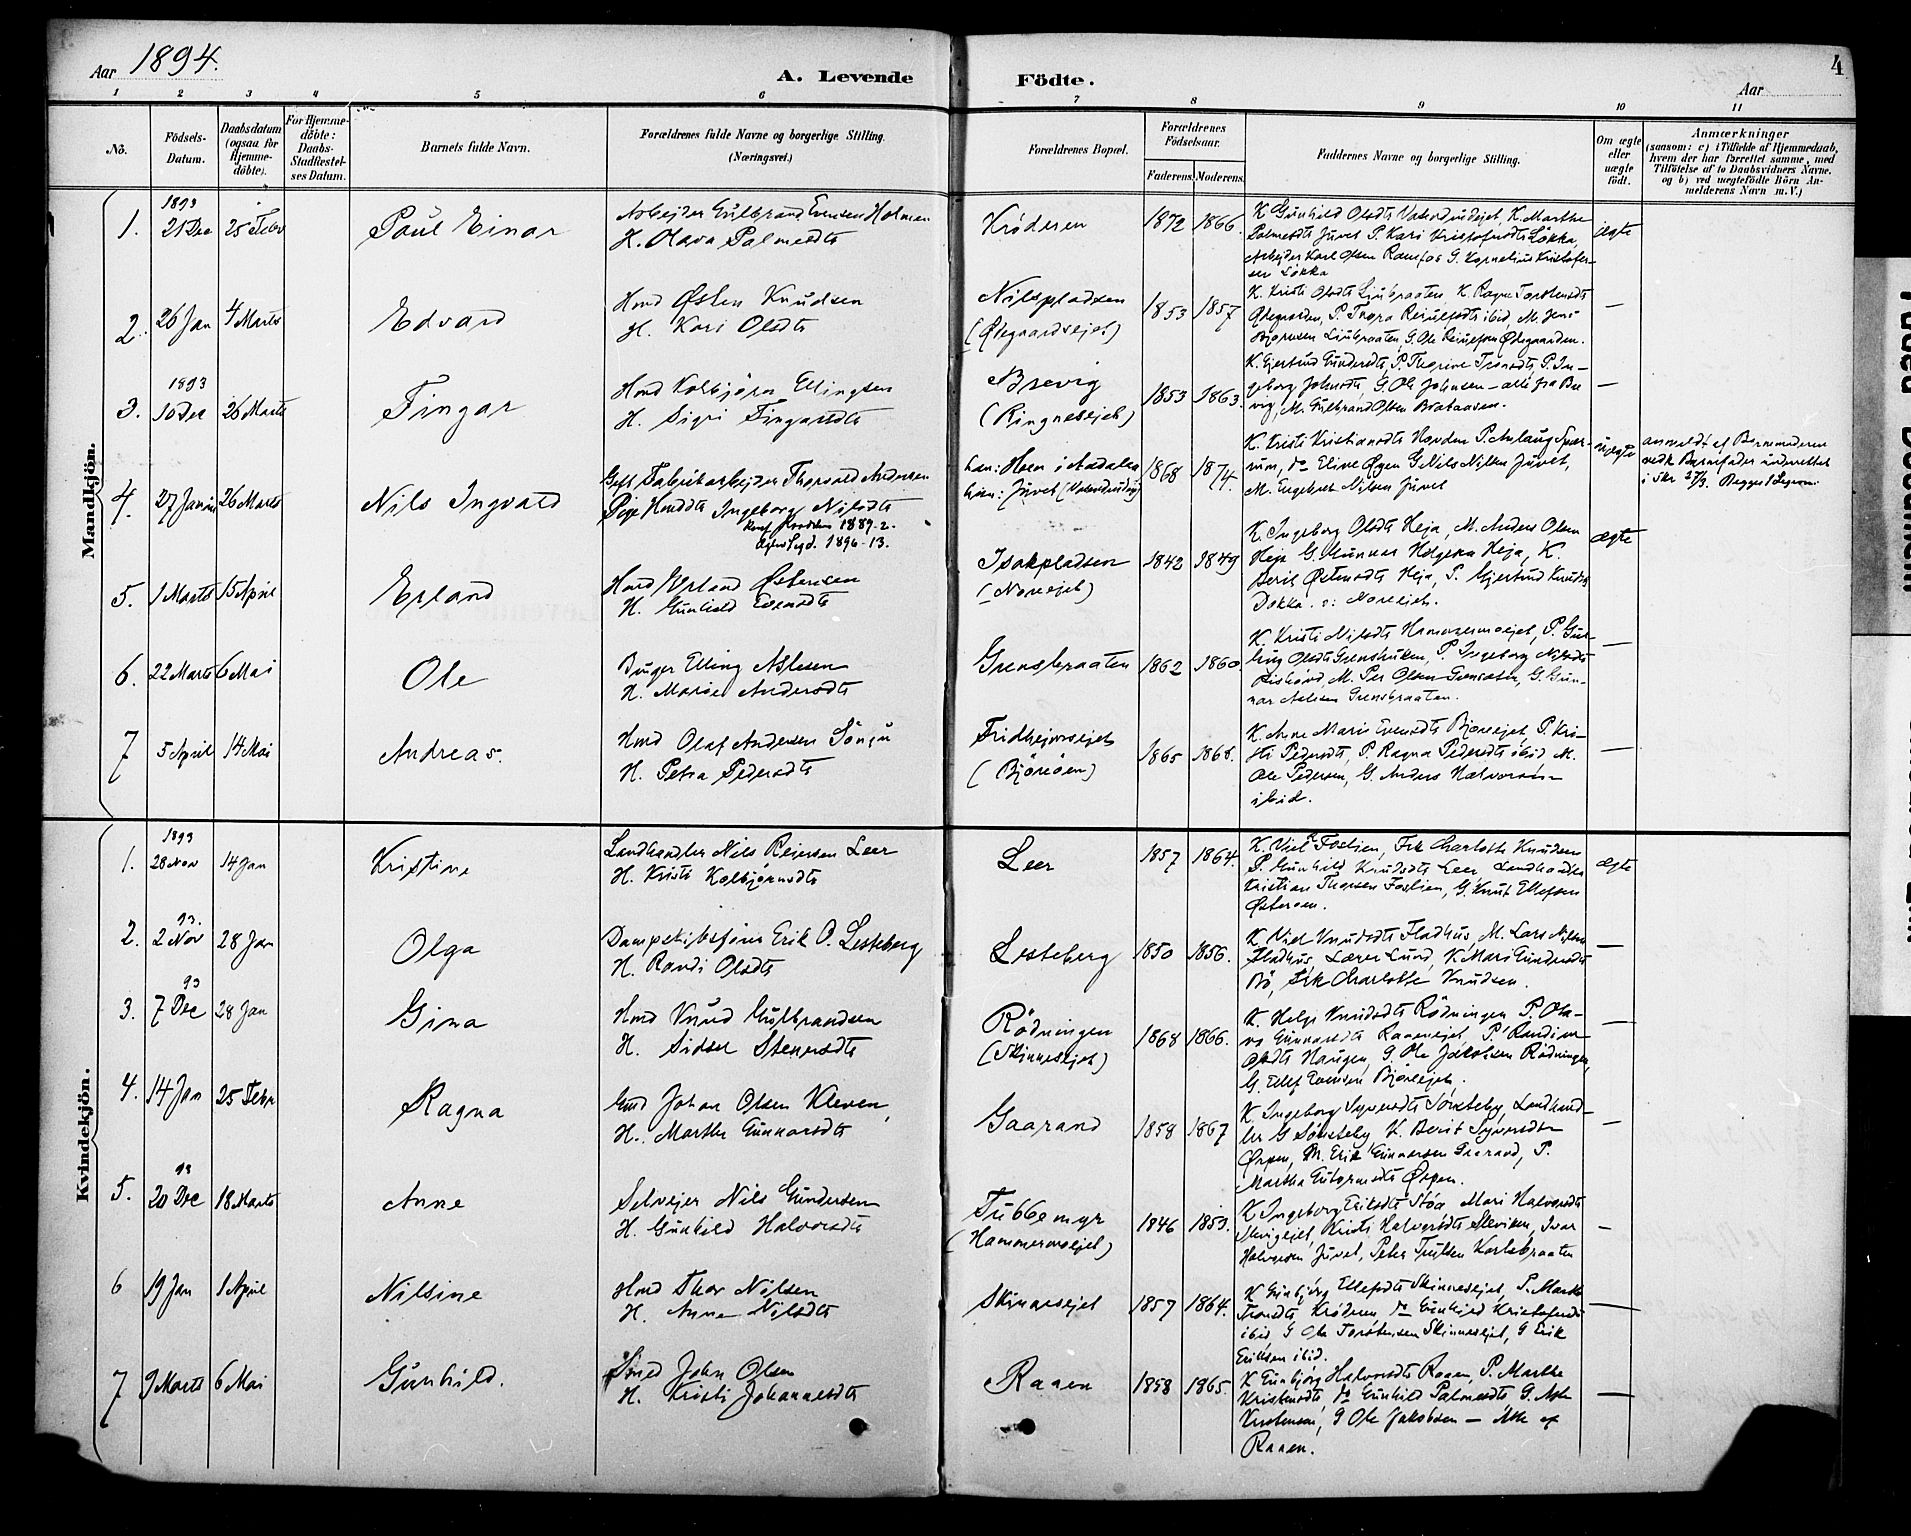 Aar 1894.
A. Levende Födte.
Aar
4
1 2 3 4 5 6 7 8 9 10 11
No.
Födsels-Datum.
Daabsdatum (ogsaa for Hjemme-döbte).
For Hjemme-döbte: Daabs-Stadfæstel-ses Datum.
Barnets fulde Navn.
Forældrenes fulde Navne og borgerlige Stilling.
(Næringsvei.)
Forældrenes Bopæl.
Forældrenes Födselsaar.
Faderens. Moderens.
Faddernes Navne og borgerlige Stilling.
Om ægte eller uægte födt.
Anmærkninger
(saasom: a) i Tilfælde af Hjemmedaab,
hvem der har forrettet samme, med
Tilföielse af to Daabsvidners Navne.
og b) ved uægtefödte Börn An-
melderens Navn m. V.)
Mandkjön.
1. 1893 21 Dec 25 Febr Paul Einar
Arbejder Gulbrand Evensen Holmen
H. Olava Palmesdtr
Krøderen 1872 1866.
K. Gunhild Olsdtr K. Marthe
Palmesdtr Juvet P. Kari Kristofersdtr Løkka,
Arbejder Karl Olsen Ramfos G. Kornelius Kristofer-
sen Løkka
ægte
2. 26 Jan 4 Marts Edvard
Hmd Østen Knudsen
H. Kari Olsdtr
Nilspladsen
(Ødegaardsejet)
1853 1857
K. Kristi Olsdtr Ljubraaten, K. Ragne Torstensdtr
Ødegaarden, P. Thora ibid, M. Jens
Ljubraaten, G. Ole Ødegaarden.
—
3. 1893 10 Dec 26 Marts Fingar
Hmd Kolbjørn Ellingsen
H. Sigri Fingarsdtr
Brevig
(Ringnesejet)
1853 1863.
K. Gjertrud Gundersdtr, P. Thorine P. In-
geborg Johnsdtr, G. Ole Johnsen – alle fra Bre
vig, M. Gulbrand Olsen Brataasen.
—
4. 27 Januar 26 Marts Nils Ingvard
Gift Fabrikarbejder Thorvald Andersen
Pige Ingeborg Nilsdtr
1889. 2.
1896-13.
han: Hoen i Aadalen
hun: Juvet
1868 1874.
K. Kristi Kristiansdtr P. Anlaug
do Eline Øyen G. Nils Nilsen Juvet,
M. Engebret Nilsen Juvet
uægte
anmeldt af Barnemoderen
Barnefader underrettet
i Skr 27/3. Begges 1 Legem.
5. 1 Marts 15 April Erland
Hmd Erland Østensen
H. Gunhild Evensdtr
Isakpladsen
(Noreejet)
1842 1849
K. Ingeborg Olsdtr Heja, M. Anders Olsen
Heja G. Gunnar Helgesen Heja, K.
Berit Østensdtr Heja, P. Gjertrud Knudsdtr
Dokka. o: Noreejet.
ægte
6. 22 Marts 6 Mai Ole
Elling Aslesen
H. Marie Andersdtr
Grensbraaten 1862 1860
K. Kristi Nilsdtr Hammersmoejet, P. Gul-
Olsdtr P. Ingeborg Nilsdtr
M. Per Olsen G. Gun-
nar Aslesen Grensbraaten.
—
7 5 April 14 Mai Andreas.
Hmd Olaf Andersen Sönju
H. Petra Pedersdtr
Fridhejmsejet
(Björeöen)
1865 1868.
K. Anne Marie Evensdtr Björeejet, P. Kri-
sti Pedersdtr, P. Ragna Pedersdtr ibid, M.
Ole Pedersen, G. Anders Halvorsen
ibid.
—
Kvindekjön.
1. 1893 28 Nov 14 Jan Kristine
Landhandler Nils Reiersen Leer
H. Kristi Kolbjörnsdtr
Leer 1857 1864.
K. Foslien, Frk Charlotte Knudsen
P. Gunhild Knudsdtr Leer, Landhandler
Kristian Thorsen Foslien, G. Knut Ellefsen
Østeroen.
ægte
2. 93. 2 Nov 28 Jan Olga
Dampskibsfører Erik O. Lesteberg
H. Randi Olsdtr
Lesteberg 1850 1856.
K. Knudsdtr Fladhus, M. Lars Nilsen
Fladhus, Lærer Lund, K. Mari Gundersdtr
Bö, Frk Charlotte Knudsen.
—
3. 93 7 Dec 28 Jan Gina
Hmd Knud Gulbrandsen
H. Sidsel Stenersdtr
Rödningen
(Skinnesejet)
1868 1866.
K. Helge Knudsdtr Rödningen P. Ola-
va Gunnarsdtr P. Randi
Olsdtr Haugen, G. Ole Jakobsen Rödningen,
G. Ellef Evensen Björeejet.
—
4. 14 Jan 25 Febr Ragna
Gmd Johan Olsen Kleven,
H. Marthe Gunnarsdtr
Gaarand 1858 1867
K. Ingeborg Syversdtr Sönsteby, Landhand-
ler G Sönsteby, K. Berit Syversdtr
Ørpen, M. Erik Gunnarsen Gaarand, P.
Martha Ørpen.
—
5. 93 20 Dec 18 Marts Anne
Selvejer Nils Gundersen
H. Gunhild Halvorsdtr
Tubbemyr
(Hammersmoejet)
1846 1853.
K Ingeborg Eriksdtr Støa Mari Halvorsdtr
Kristi Halvorsdtr Ivar
Halvorsen Juvet, Peter
—
6 19 Jan 1 April Nilsine
Hmd Thor Nilsen
H. Anne Nilsdtr
Skinnesejet 1857 1864.
K Gunbjörg Ellefsdtr Skinnesejet, P. Marthe
Trondsdtr, Krøderen, do Gunhild Kristofersdtr
ibid G Ole Torstensen Skinnesejet, G Erik
Eriksen ibid.
—
7 9 Marts 6 Mai Gunhild.
Smed John Olsen
H. Kristi Johannesdtr
Raaen 1858 1865.
K Gunbjörg Halvorsdtr Raaen, P. Marthe
Kristensdtr, do Gunhild Palmesdtr G. Asle
Kristensen, G Ole Jakobsen – Alle af
Raaen.
—